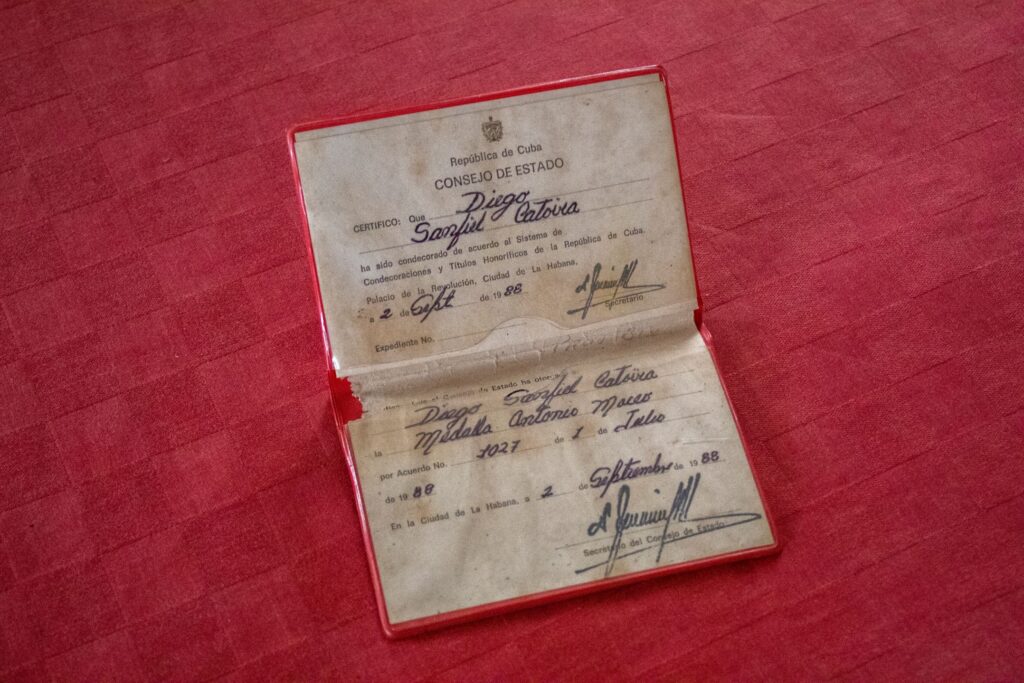 República de Cuba
CONSEJO DE ESTADO
CERTIFICO: Que Diego
Sanfiel Catoira
ha sido condecorado de acuerdo al Sistema de
Condecoraciones y Títulos Honoríficos de la República de Cuba.
Palacio de la Revolución, Ciudad de La Habana,
a 2 de Sept de 1988
Secretario
Expediente No.
el Consejo de Estado ha
Diego Sanfiel Catoira
la Medalla Antonio Maceo
por Acuerdo No. 1027 de 1 de Julio
de 1988
En la Ciudad de La Habana, a 2 de Septiembre de 1988
Secretario del Consejo de Estado